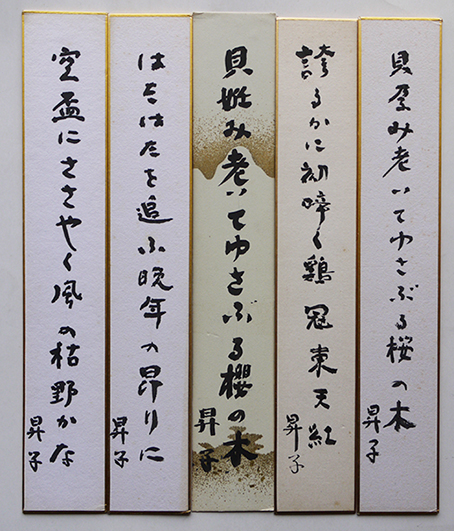 貝孕み老いてゆさぶる桜の木
昇子
誇るかに初啼く鶏冠東天紅
昇子
貝姙み老いてゆさぶる櫻の木
昇子
はたはたを追ふ晩年の昂りに
昇子
空盃にささやく風の枯野かな
昇子